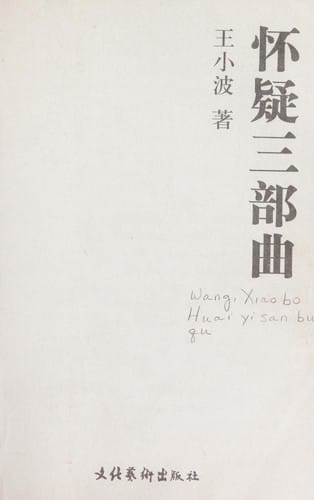 怀疑三部曲
王小波 著
Wang, Xiao bo
Huai yi san bu
qu
文化艺術出版社